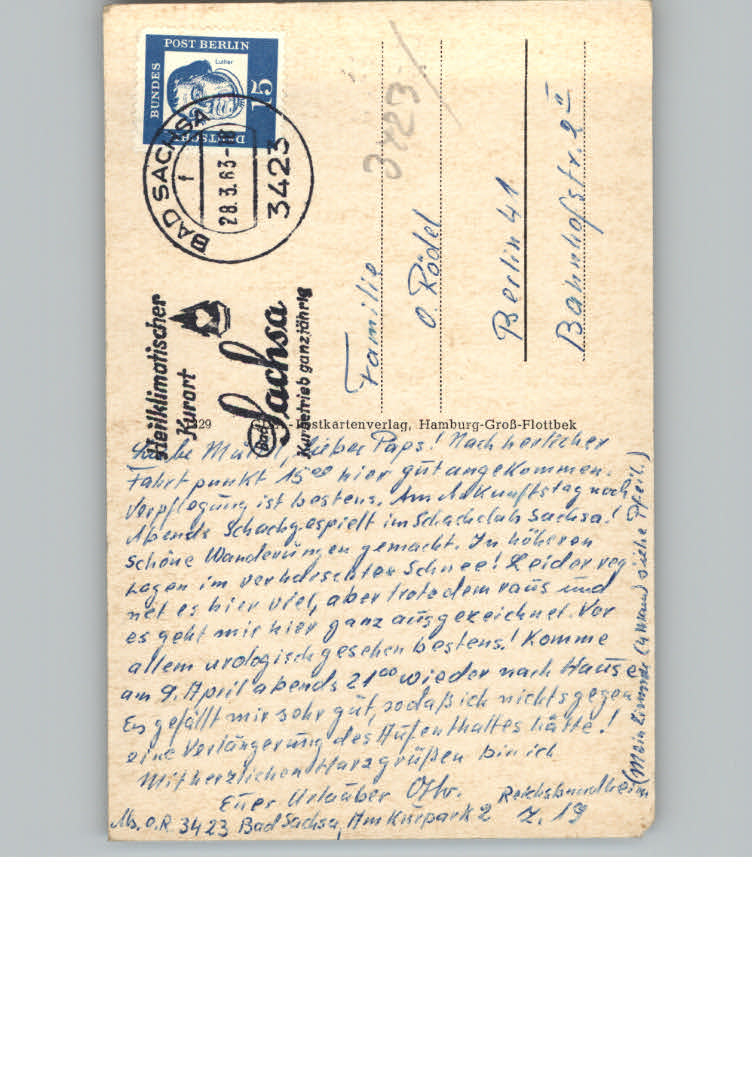 DEUTSCHE
BUNDES
POST BERLIN
Luther
15
BAD SACHSA
f
28.3.63
3423
Heilklimatischer
Kurort
Bad Sachsa
Kurbetrieb ganzjährig
3423
Familie
O. Rödel
Berlin 41
Bahnhofstr. 2 II
-Postkartenverlag, Hamburg-Groß-Flottbek
Liebe Mutti, lieber Paps! Nach herlicher
Fahrt punkt 1500 hier gut angekommen.
Verpflegung ist bestens. Am Ankunftstag noch
Abends Schach gespielt im Schachclub Sachsa!
Schöne Wanderungen gemacht. In höheren
Lagen im verharschter Schnee! Leider reg-
net es hier viel, aber trotzdem raus und
es geht mir hier ganz ausgezeichnet. Vor
allem urologisch gesehen bestens! Komme
am 9. April abends 2100 wieder nach Hause
Es gefällt mir sehr gut, sodaß ich nichts gegen
eine Verlängerung des Aufenthaltes hätte!
Mit herzlichen Harzgrüßen bin ich
Euer Urlauber
Abs. O.R. 3423 Bad Sachsa, Am Kurpark 2
Reichsbundheim
Z. 19
(Mein Zimmer (4 Mann) siehe Pfeil.)